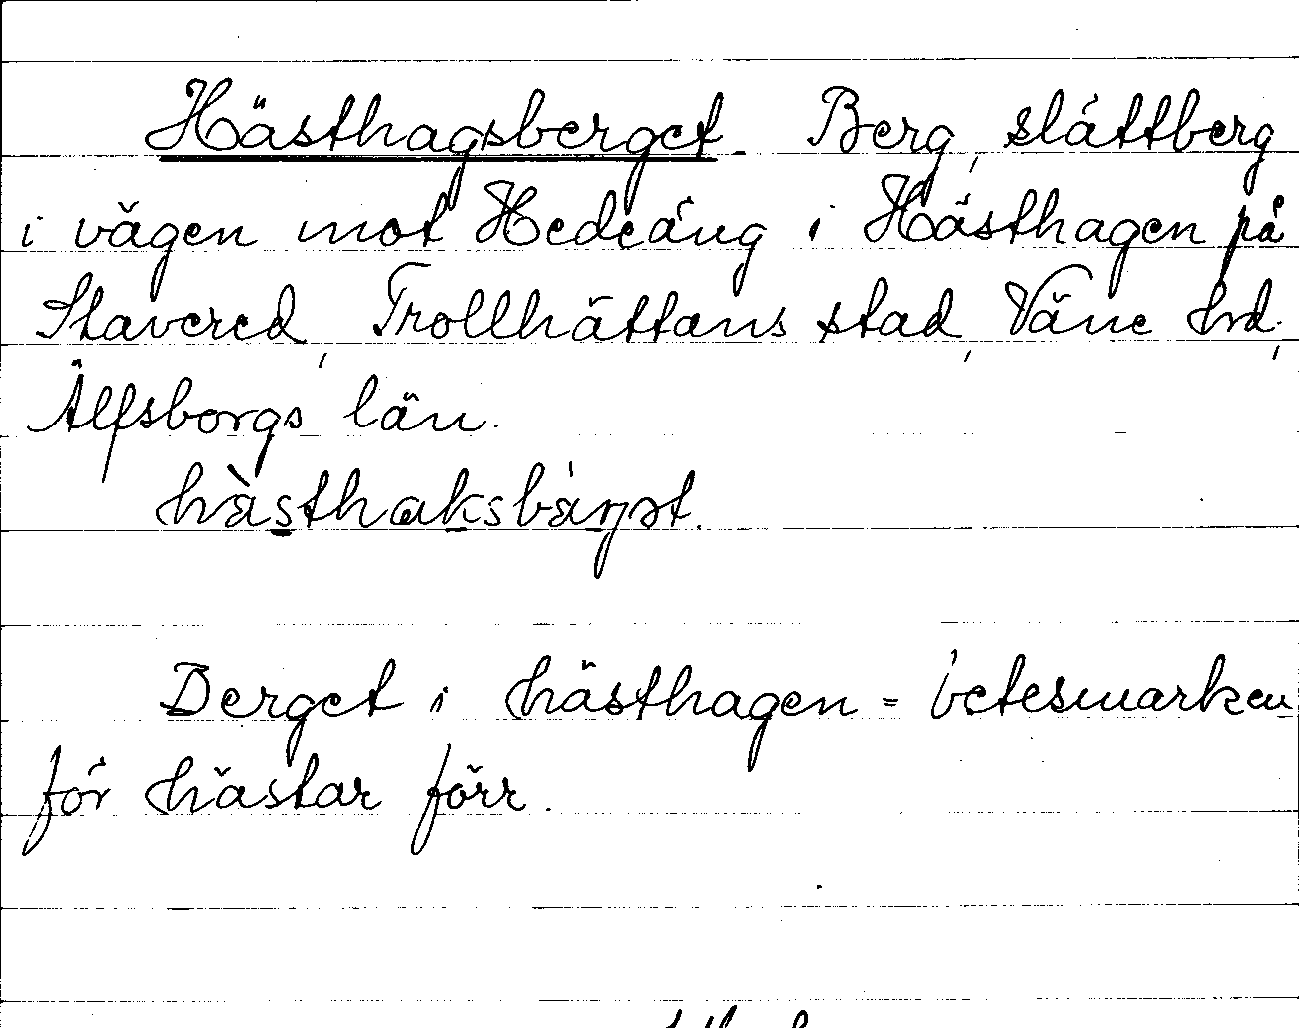 Hästhagsberget. Berg, slättberg
i vägen mot Hedeäng i Hästhagen på
Stavered, Trollhättans stad, Väne hd.,
Älfsborgs län.
hàsthaksbárjət.
Berget i hästhagen = betesmarken
för hästar förr.